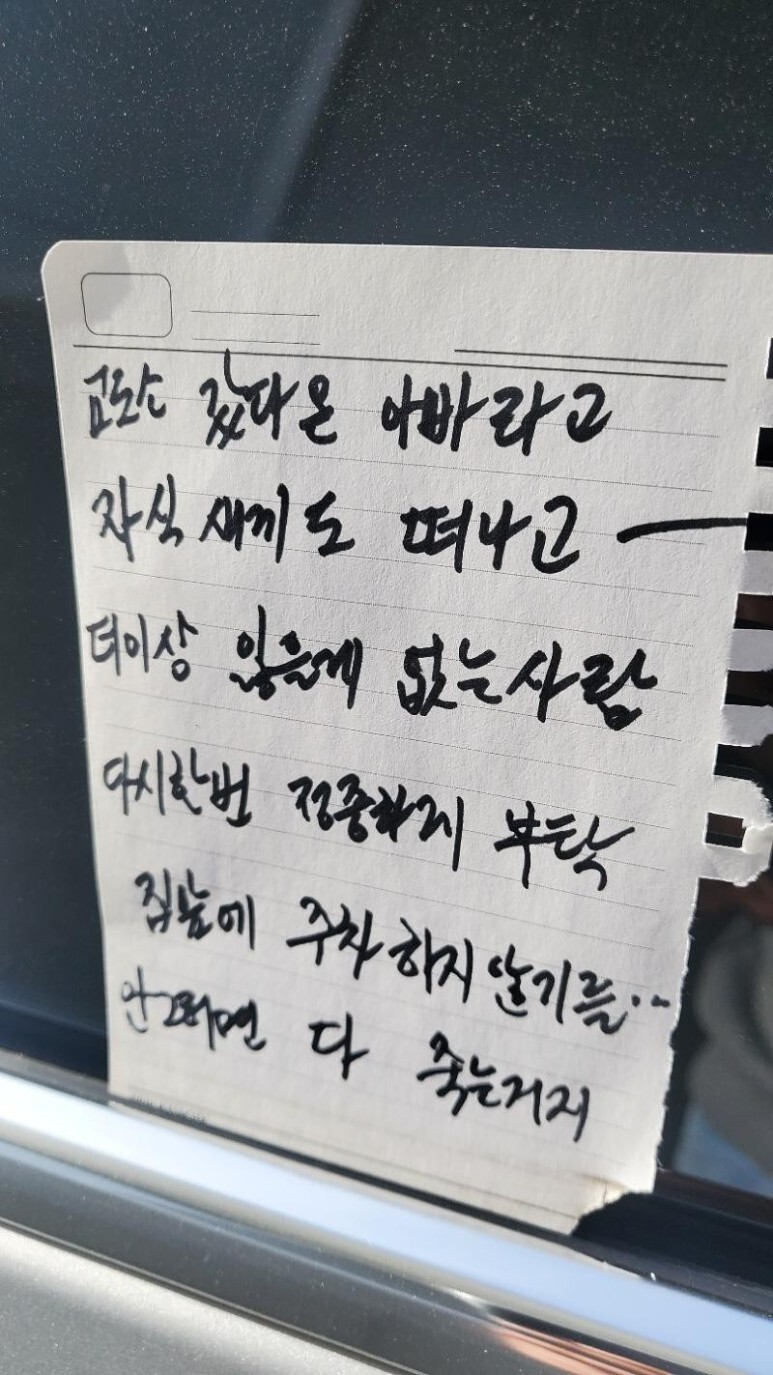 깜로소 갔다온 아빠라고
자식 새끼도 떠나고 —
더이상 잃을게 없는사람
다시한번 정중하게 부탁
집앞에 주차하지 않기를..
안그러면 다 죽는거지